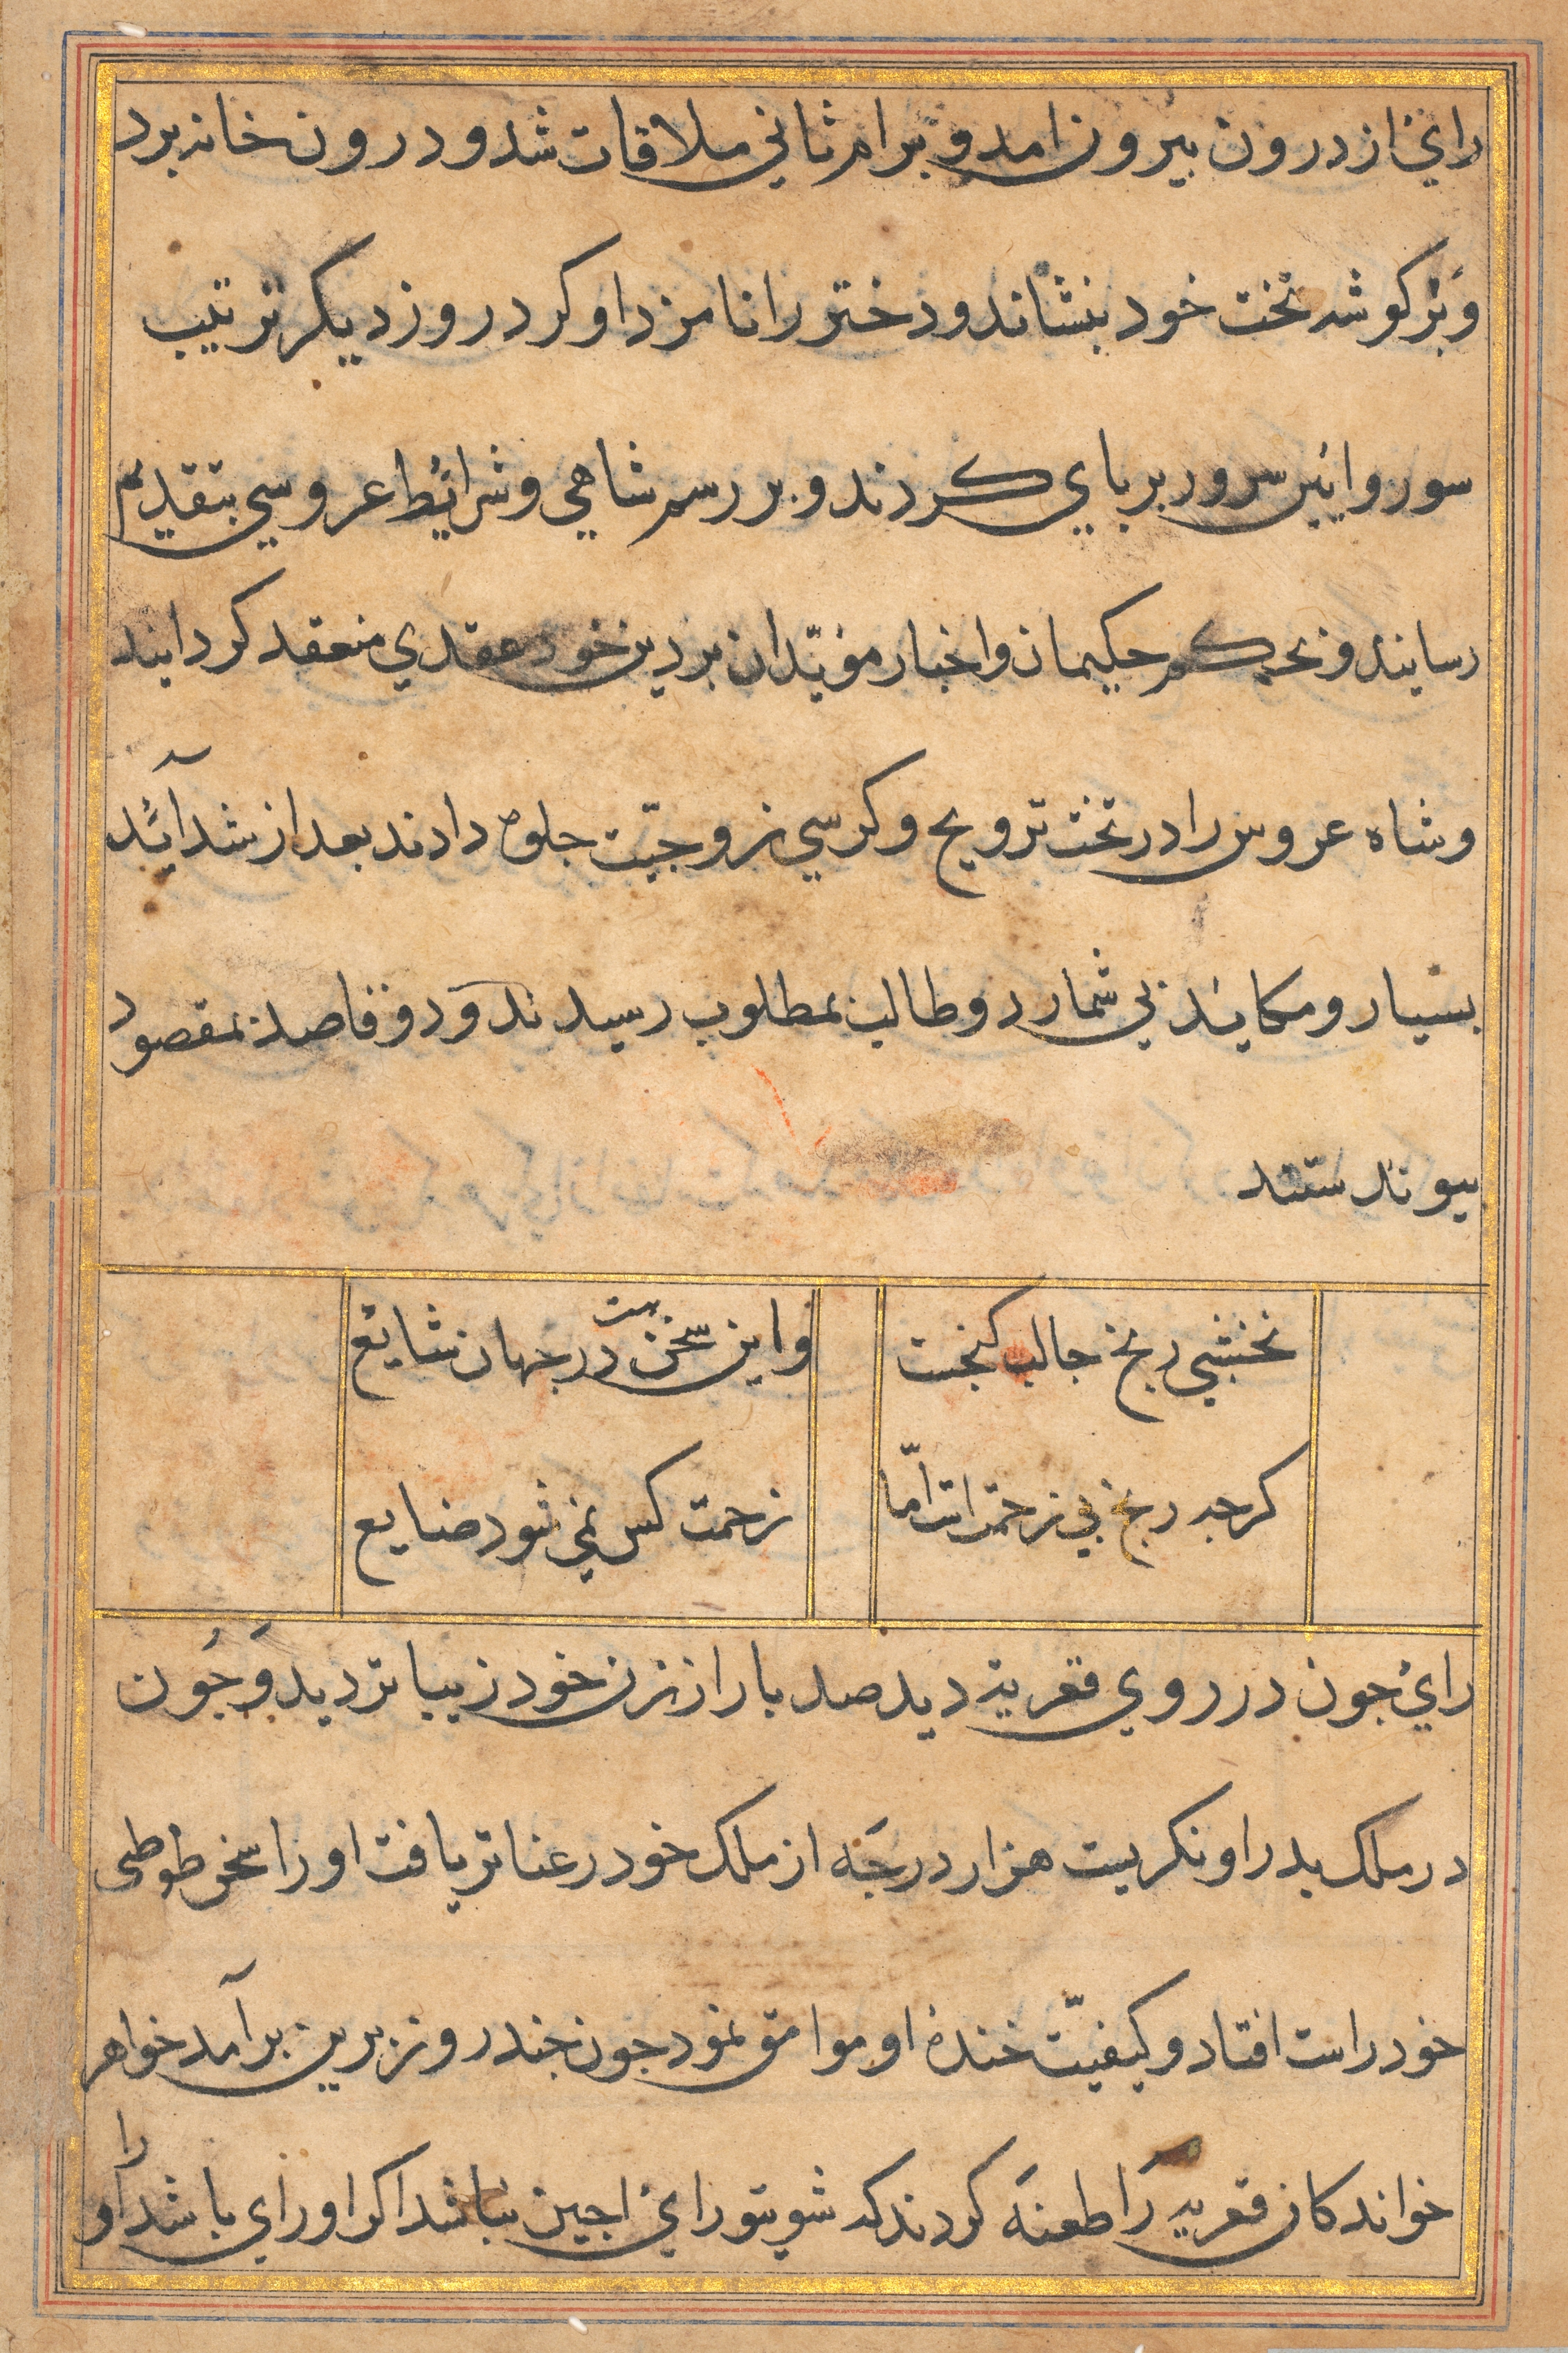 راي از درون بیرون امد و برام ثاني ملاقات شد و درون خانه برد
و بر کوشه تخت خود بنشاند و دختر را نامزد او کرد روز دیکر ترتیب
سور و ایین سرور بر باي کردند و بر رسم شاهي و شرائط عروسي بتقدیم
رسانید و بحکم حکیمان و اخبار مؤبدان بر دین خود عقدي منعقد کردانید
و شاه عروس را در تخت ترویج و کرسي زوجیّت جلوه دادند بعد از شدآئد
بسیار و مکائد بي شمار دو طالب بمطلوب رسیدند و دو قاصد بمقصود
بیوندستند
نخشبي رنج جالب کنجست
واین سخن در جهان شایع
بیت
کرجه رنج بي زحمتست امّا
زحمت کس نمي شود ضایع
راي جون در روي قعریه دید صد بار از زن خود زیبا تر دید وَ جُون
در ملک بدر او نکریست هزار درجَه از ملک خود رعنا تر یافت او را سخن طوطی
خود راست افتاد و کیفیّت خندهٔ او موافق نمود جون جند روز برین برآمد خواهر
خواندکان قعریه رَا طعنَه کردند که شوي تو راي اجین نباشد اکر او راي باشد او
را